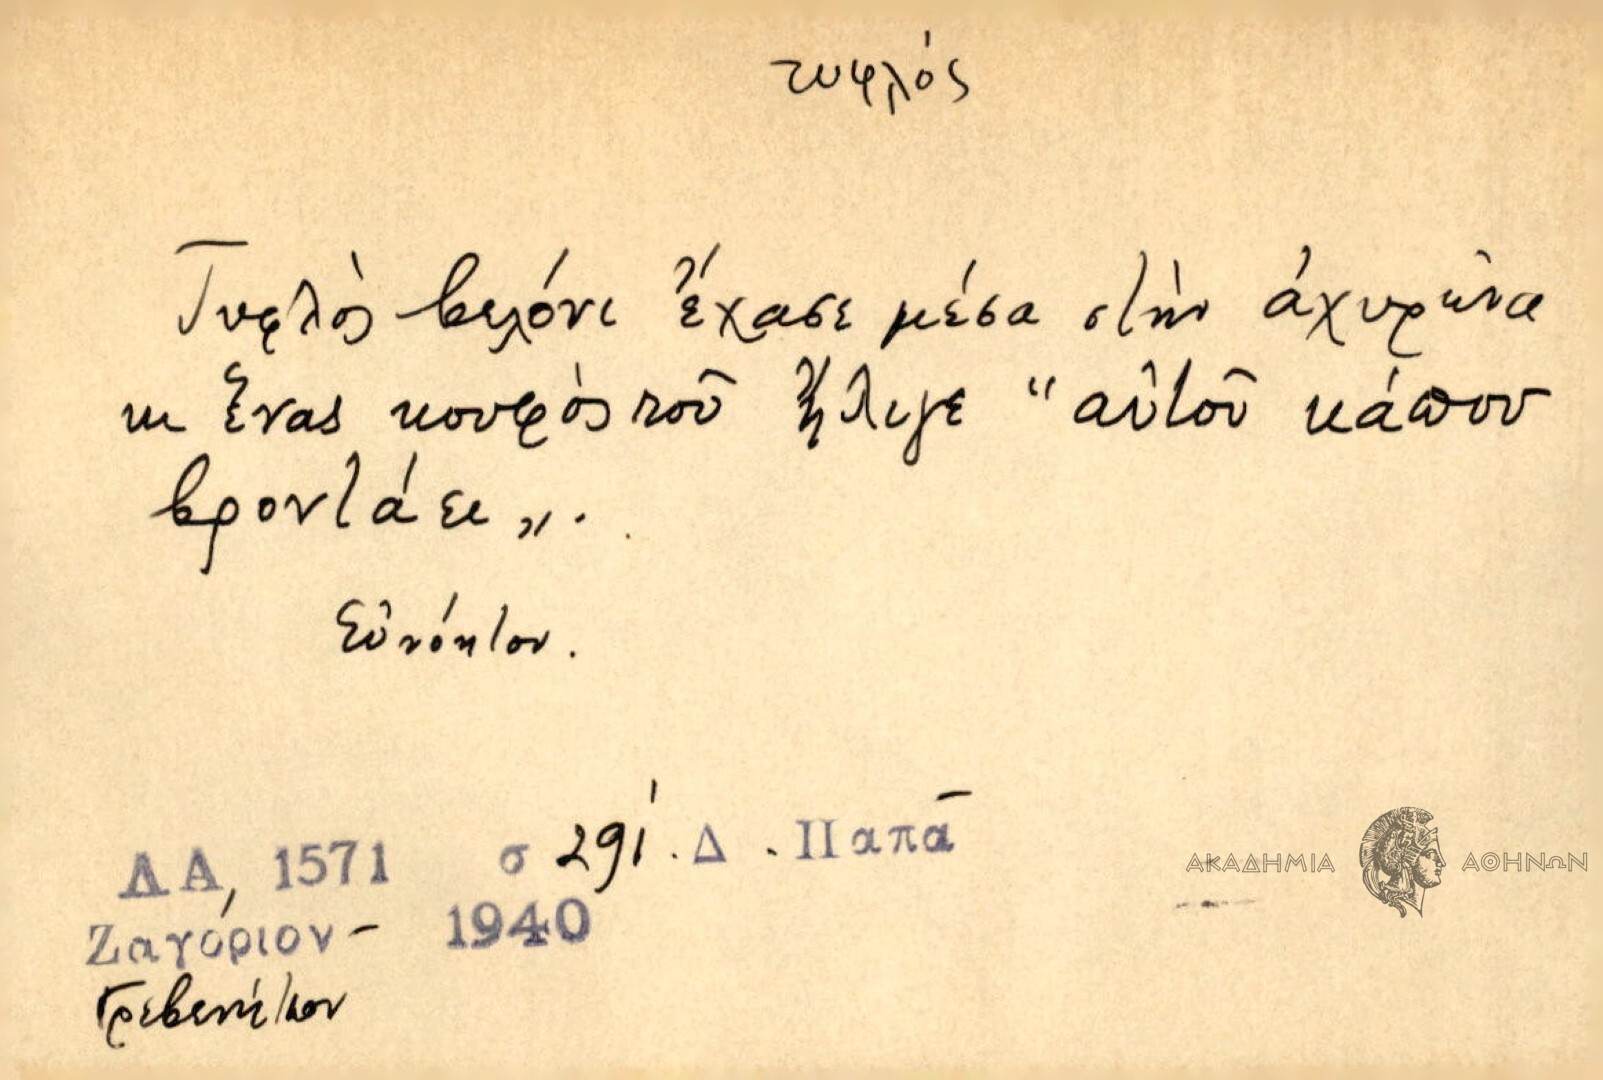 τυφλός
Τυφλὸς βελόνι ἔχασε μέσα στὴν ἀχυρῶνα
κι ἕνας κουφὸς τοῦ ἔλεγε "αὐτοῦ κάπου
βροντάει„.
Εὐνόητον.
ΛΑ, 1571 σ 291. Δ. Παπᾶ
Ζαγόριον - 1940
Γρεβενήτιον
ΑΚΑΔΗΜΙΑ ΑΘΗΝΩΝ